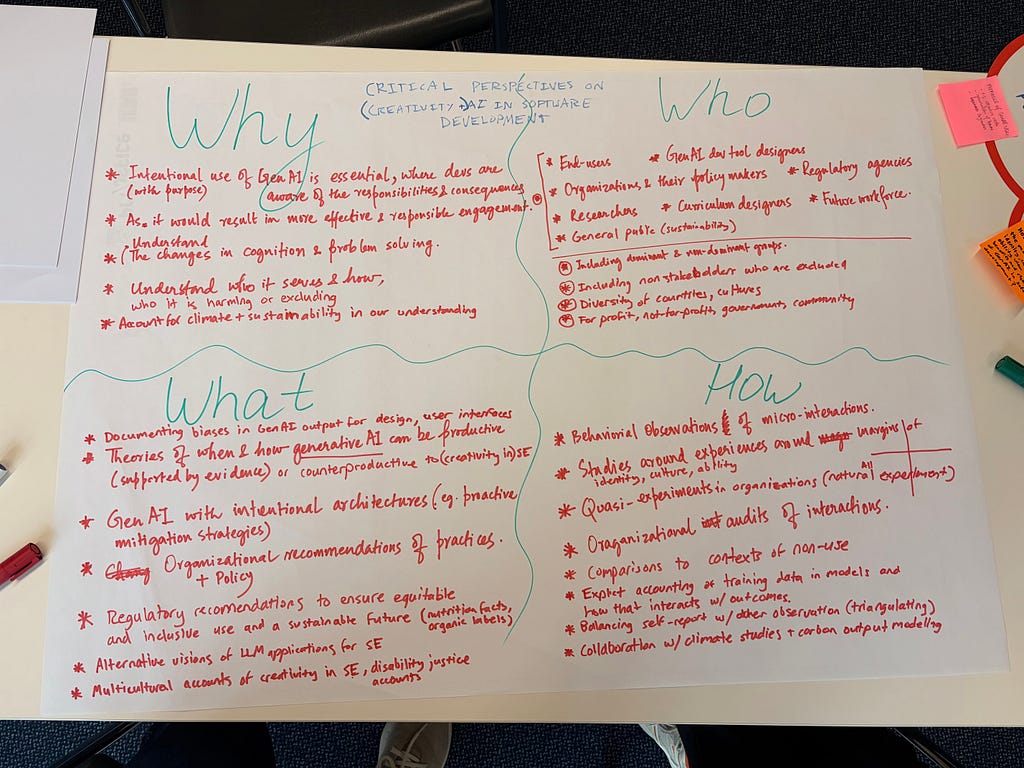 CRITICAL PERSPECTIVES ON
(CREATIVITY +) AI IN SOFTWARE
DEVELOPMENT
Why
* Intentional use of GenAI is essential, where devs are
(with purpose) aware of the responsibilities & consequences
* As it would result in more effective & responsible engagement.
Understand
* (The changes in cognition & problem solving.
* Understand who it serves & how,
who it is harming or excluding
* Account for climate + sustainability in our understanding
Who
* End-users * GenAI dev tool designers
* Organizations & their policy makers * Regulatory agencies
* Researchers * Curriculum designers * Future workforce.
* General public (sustainability)
* Including dominant & non-dominant groups.
* Including non-stakeholders who are excluded
* Diversity of countries, cultures
* For profit, not-for-profit, government, community
What
* Documenting biases in GenAI output for design, user interfaces
* Theories of when & how generative AI can be productive
(supported by evidence) or counterproductive to (creativity in) SE
* GenAI with intentional architectures (eg. proactive
mitigation strategies)
* Organizational recommendations of practices.
+ Policy
* Regulatory recomendations to ensure equitable
and inclusive use and a sustainable future (nutrition facts,
organic labels)
* Alternative visions of LLM applications for SE
* Multicultural accounts of creativity in SE, disability justice
accounts
How
* Behaviorial Observations of micro-interactions.
* Studies around experiences around margins of
identity, culture, ability
All
* Quasi-experiments in organizations (natural experiment)
* Oraganizational audits of interactions.
* Comparisons to contexts of non-use
* Explict accounting of training data in models and
how that interacts w/ outcomes.
* Balancing self-report w/ other observation (triangulating)
* Collaboration w/ climate studies + carbon output modeling